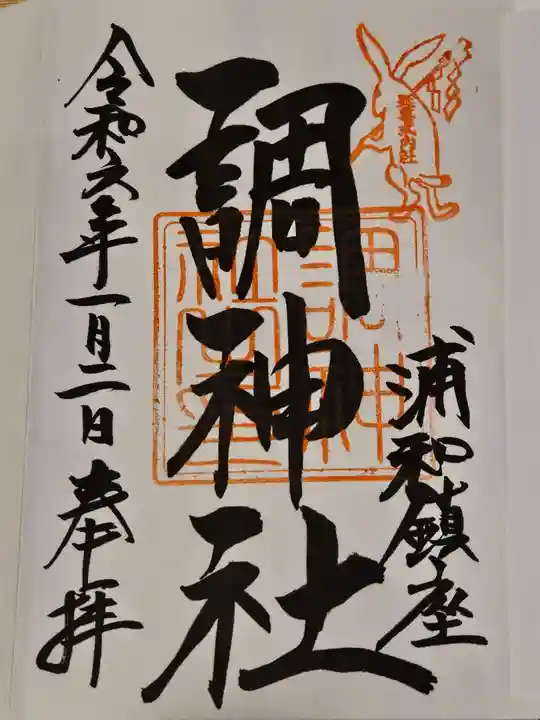 浦和鎮座
調神社
令和六年一月二日奉拝